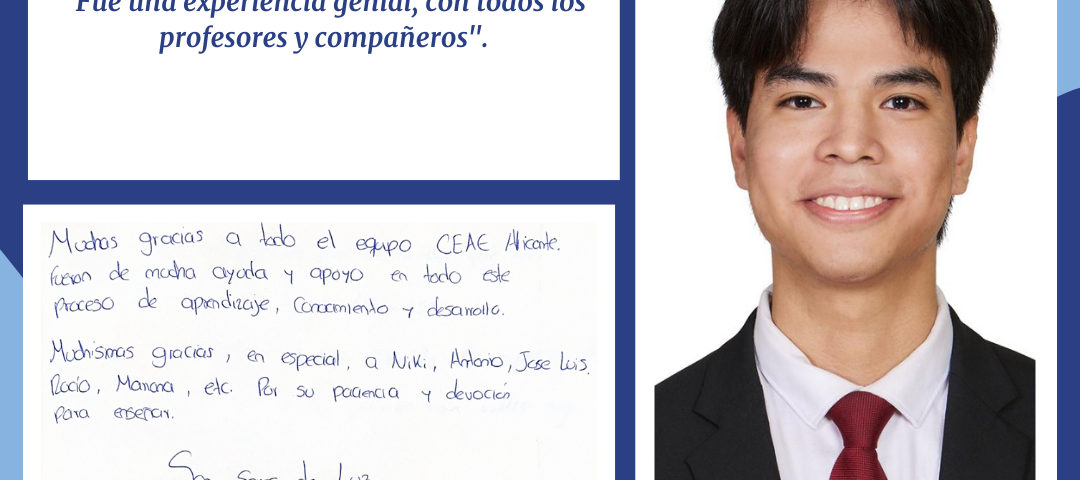 "Fue una experiencia genial, con todos los
profesores y compañeros".
Muchas gracias a todo el equipo CEAE Alicante.
Fueron de mucha ayuda y apoyo en todo este
proceso de aprendizaje, conocimiento y desarrollo.
Muchísimas gracias, en especial, a Niki, Antonio, Jose Luis,
Rocío, Manona, etc. Por su paciencia y devoción
para enseñar.